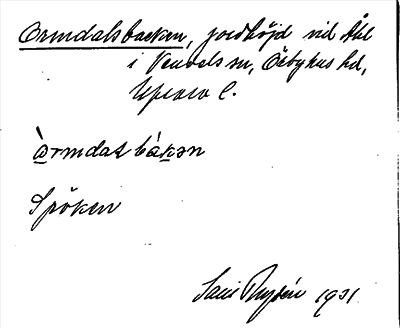 Ormdalsbacken, jordhöjd vid Åkl
i Vendels sn, Örbyhus hd,
Uppsala l.
òrmdaɫbàkən
Spöken
1931